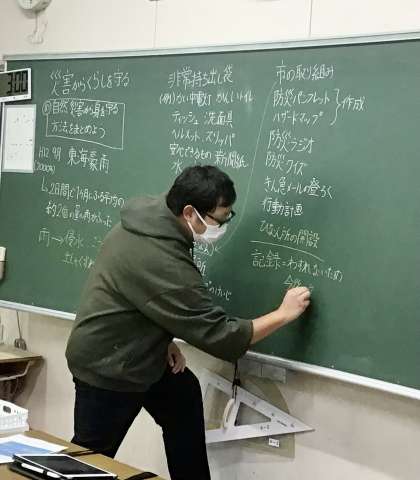 3:00
災害からくらしを守る
自然災害から身を守る
方法をまとめよう
H12 9月 東海豪雨
(2000年)
2日間で1年にふる平均の
約2倍の量の雨がふった
雨→浸水
非常持ち出し袋
(例)かい中電灯 かんいトイレ
ティッシュ 洗面具
ヘルメット スリッパ
安心できるもの 新聞紙
水
市の取り組み
防災パンフレット
ハザードマップ
作成
防災ラジオ
防災クイズ
きん急メールの登ろく
行動計画
ひなん所の開設
記録=わすれないため